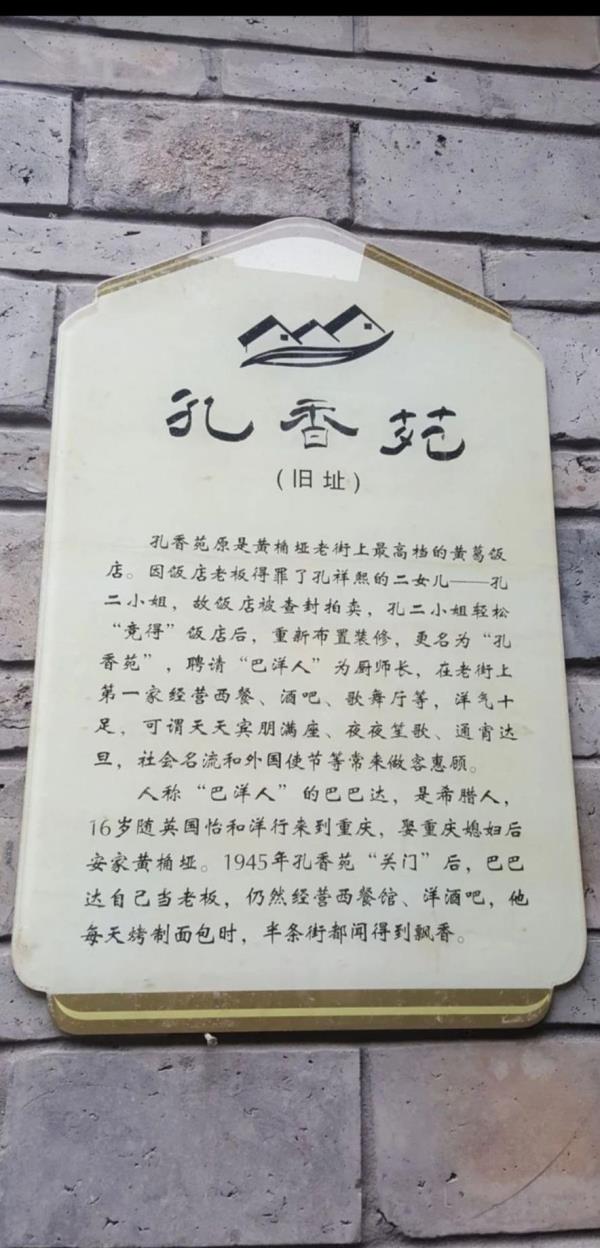 孔香苑
(旧址)
孔香苑原是黄桷垭老街上最高档的黄葛饭
店。因饭店老板得罪了孔祥熙的二女儿——孔
二小姐，故饭店被查封拍卖，孔二小姐轻松
“竞得”饭店后，重新布置装修，更名为“孔
香苑”，聘请“巴洋人”为厨师长，在老街上
第一家经营西餐、酒吧、歌舞厅等，洋气十
足，可谓天天宾朋满座、夜夜笙歌、通宵达
旦，社会名流和外国使节等常来做客惠顾。
人称“巴洋人”的巴巴达，是希腊人，
16岁随英国怡和洋行来到重庆，娶重庆媳妇后
安家黄桷垭。1945年孔香苑“关门”后，巴巴
达自己当老板，仍然经营西餐馆、洋酒吧，他
每天烤制面包时，半条街都闻得到飘香。